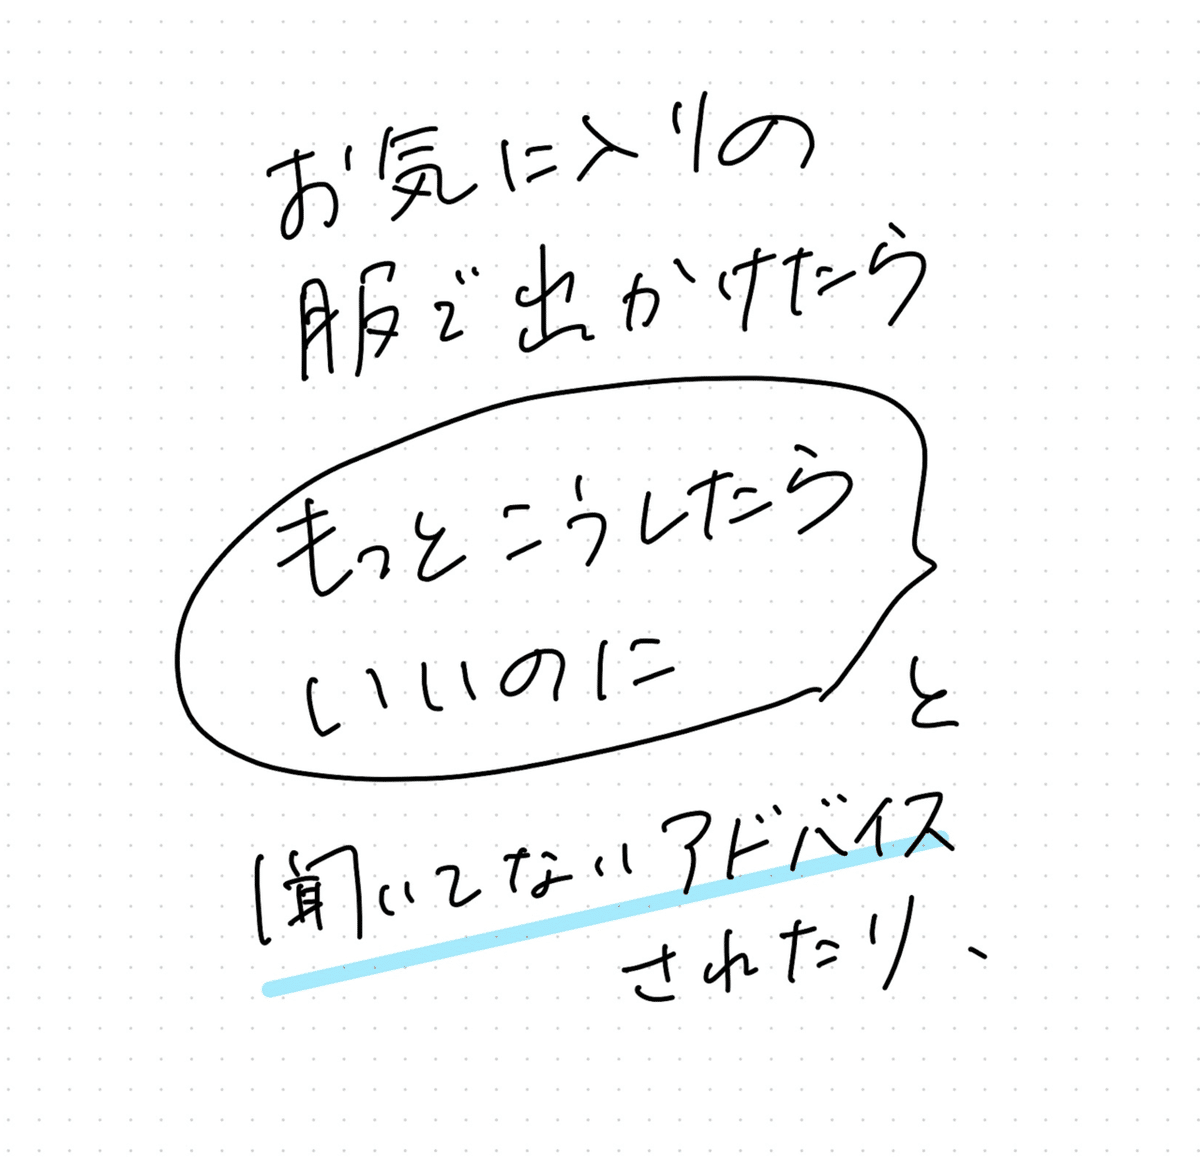 お気に入りの
服で出かけたら
もっとこうしたら
いいのに
と
聞いてないアドバイス
されたり、